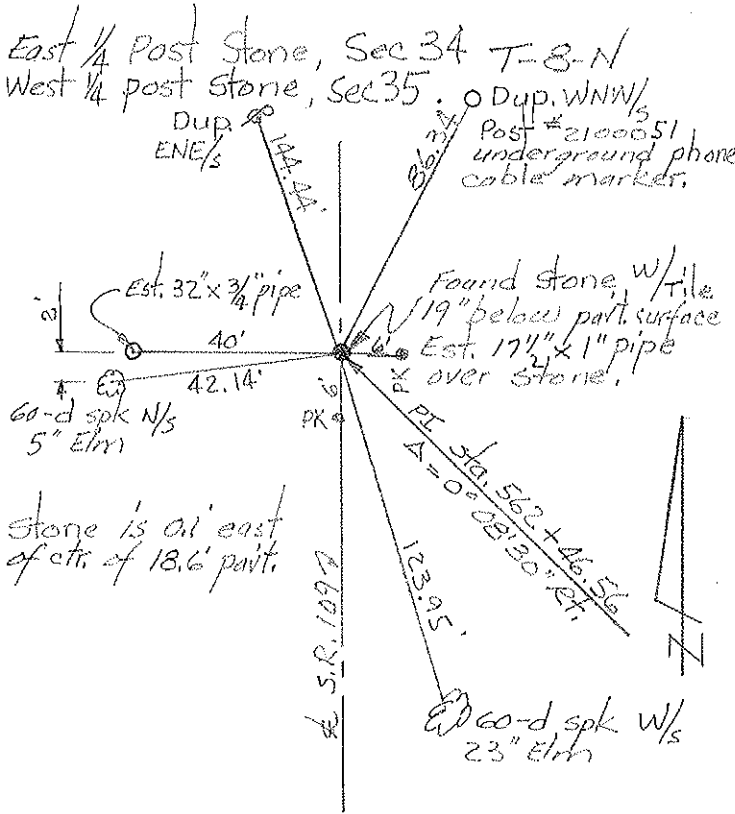 East 1/4 Post Stone, Sec 34 T-8-N
West 1/4 post stone, Sec 35.
Dup.
ENE/s
144.44'
86.34
Dup. WNW/s
Post #2100051
underground phone
cable marker.
2'
Est. 32" x 3/4" pipe
40'
42.14'
60-d spk N/s
5" Elm
Found stone W/Tile
19" below pavt. surface
Est. 17 1/2" x 1" pipe
over stone.
6'
PK
6'
PK
PI Sta. 562+46.56
Δ = 0° 08' 30" Rt.
Stone is 0.1' east
of ctr. of 18.6' pavt.
℄ S.R. 109
123.95'
N
60-d spk W/s
23" Elm